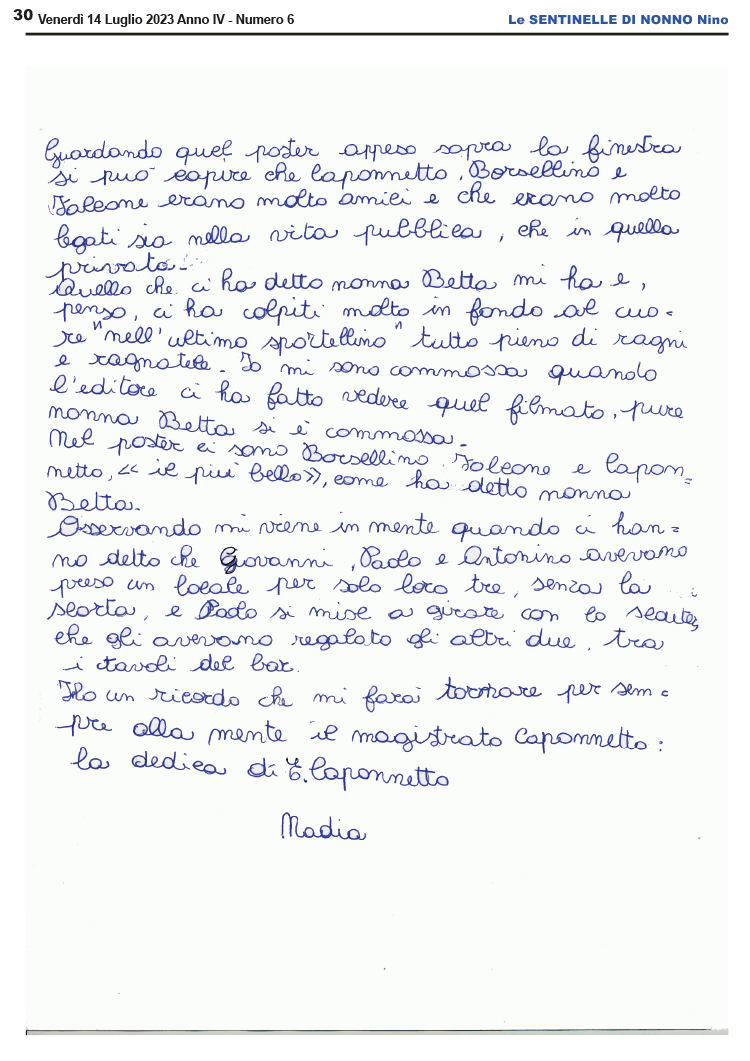 30 Venerdì 14 Luglio 2023 Anno IV - Numero 6
Le SENTINELLE DI NONNO Nino
Guardando quel poster appeso sopra la finestra
si può capire che Caponnetto, Borsellino e
Falcone erano molto amici e che erano molto
legati sia nella vita pubblica, che in quella
privata.
Quello che ci ha detto nonna Betta mi ha e,
penso, ci ha colpiti molto in fondo al cuo=
re "nell'ultimo sportellino" tutto pieno di ragni
e ragnatele. Io mi sono commossa quando
l'editore ci ha fatto vedere quel filmato, pure
nonna Betta si è commossa.
Nel poster ci sono Borsellino, Falcone e Capon=
netto, «il più bello», come ha detto nonna
Betta.
Osservando mi viene in mente quando ci han=
no detto che Giovanni, Paolo e Antonino avevano
preso un locale per solo loro tre, senza la
scorta, e Paolo si mise a girare con lo scuter,
che gli avevano regalato gli altri due, tra
i tavoli del bar.
Ho un ricordo che mi farai tornare per sem=
pre alla mente il magistrato Caponnetto:
la dedica di E. Caponnetto
Nadia